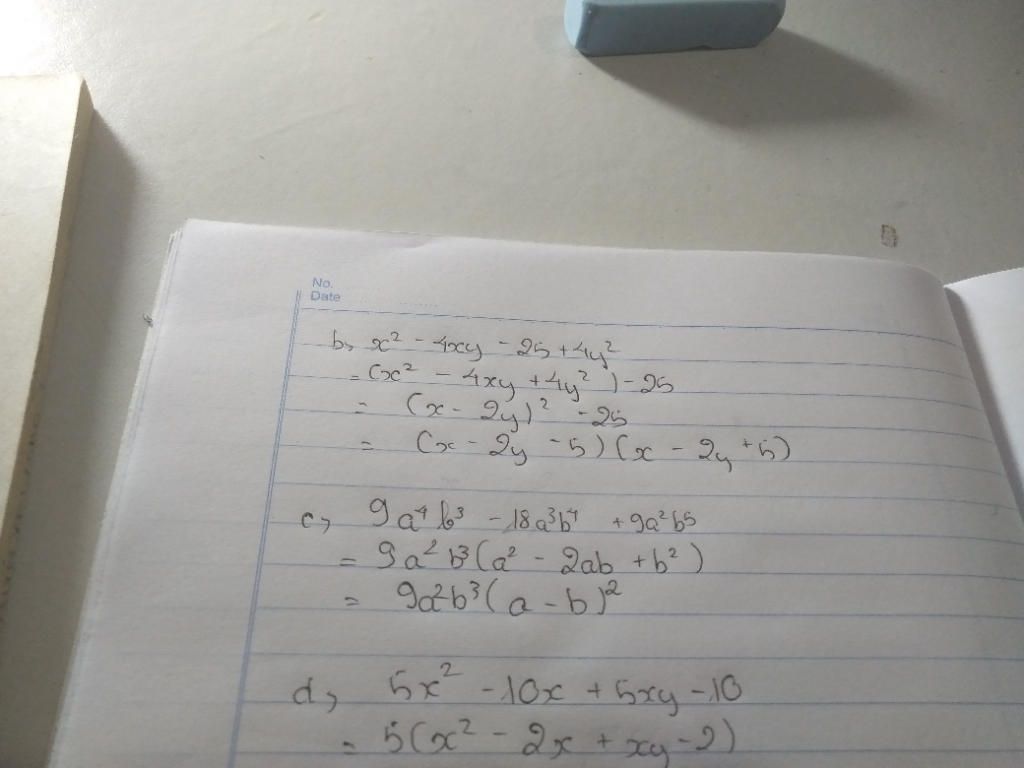 No.
Date
b, x² - 4xy - 25 + 4y²
= (x² - 4xy + 4y²) - 25
= (x - 2y)² - 25
= (x - 2y - 5)(x - 2y + 5)
c, 9a⁴b³ - 18a³b⁴ + 9a²b⁵
= 9a²b³(a² - 2ab + b²)
= 9a²b³(a - b)²
d, 5x² - 10x + 5xy - 10
= 5(x² - 2x + xy - 2)